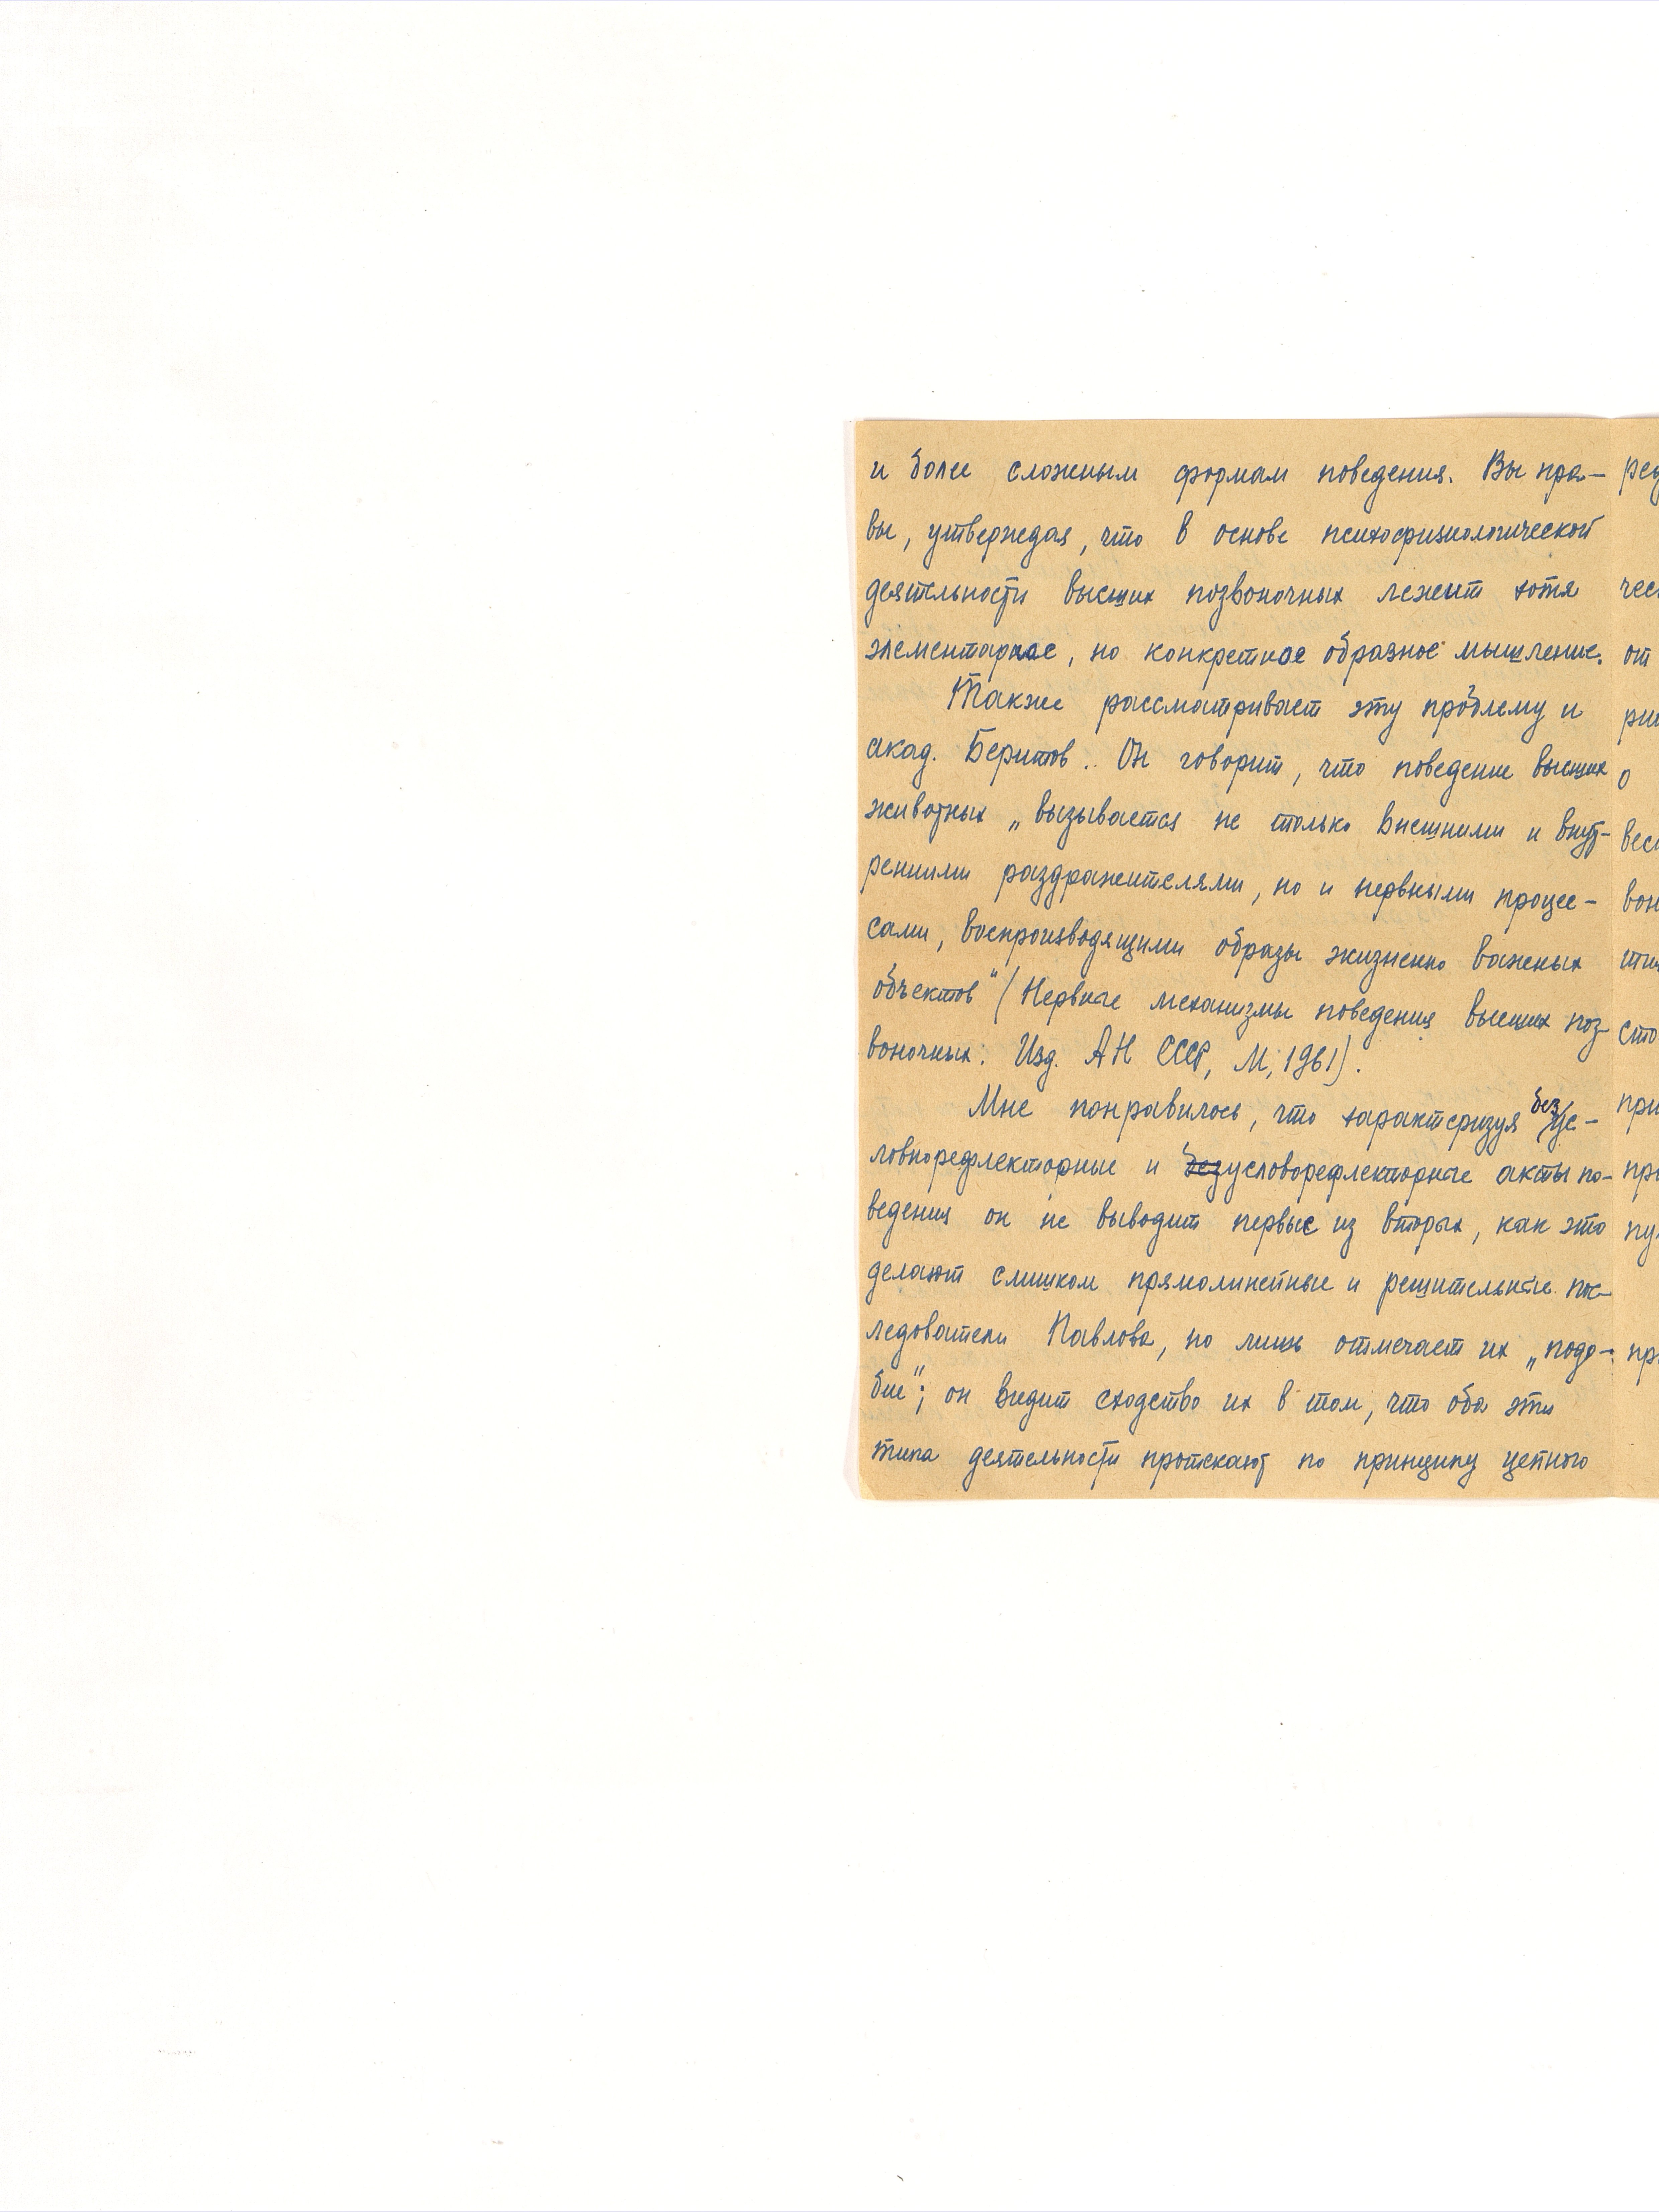 и более сложным формам поведения. Вы пра-
вы, утверждая, что в основе психофизиологической
деятельности высших позвоночных лежит хотя
элементарное, но конкретное образное мышление.
Также рассматривает эту проблему и
акад. Беритов.. Он говорит, что поведение высших
животных „вызывается не только внешними и внут-
ренними раздражителями, но и нервными процес-
сами, воспроизводящими образы жизненно важных
объектов" (Нервные механизмы поведения высших поз-
воночных. Изд. АН СССР, М, 1961).
Мне понравилось, что характеризуя безус-
ловнорефлекторные и безусловорефлекторные акты по-
ведения он не выводит первые из вторых, как это
делают слишком прямолинейные и решительные пос-
ледователи Павлова, но лишь отмечает их „подо-
бие"; он видит сходство их в том, что оба эти
типа деятельности протекают по принципу цепного
от
о